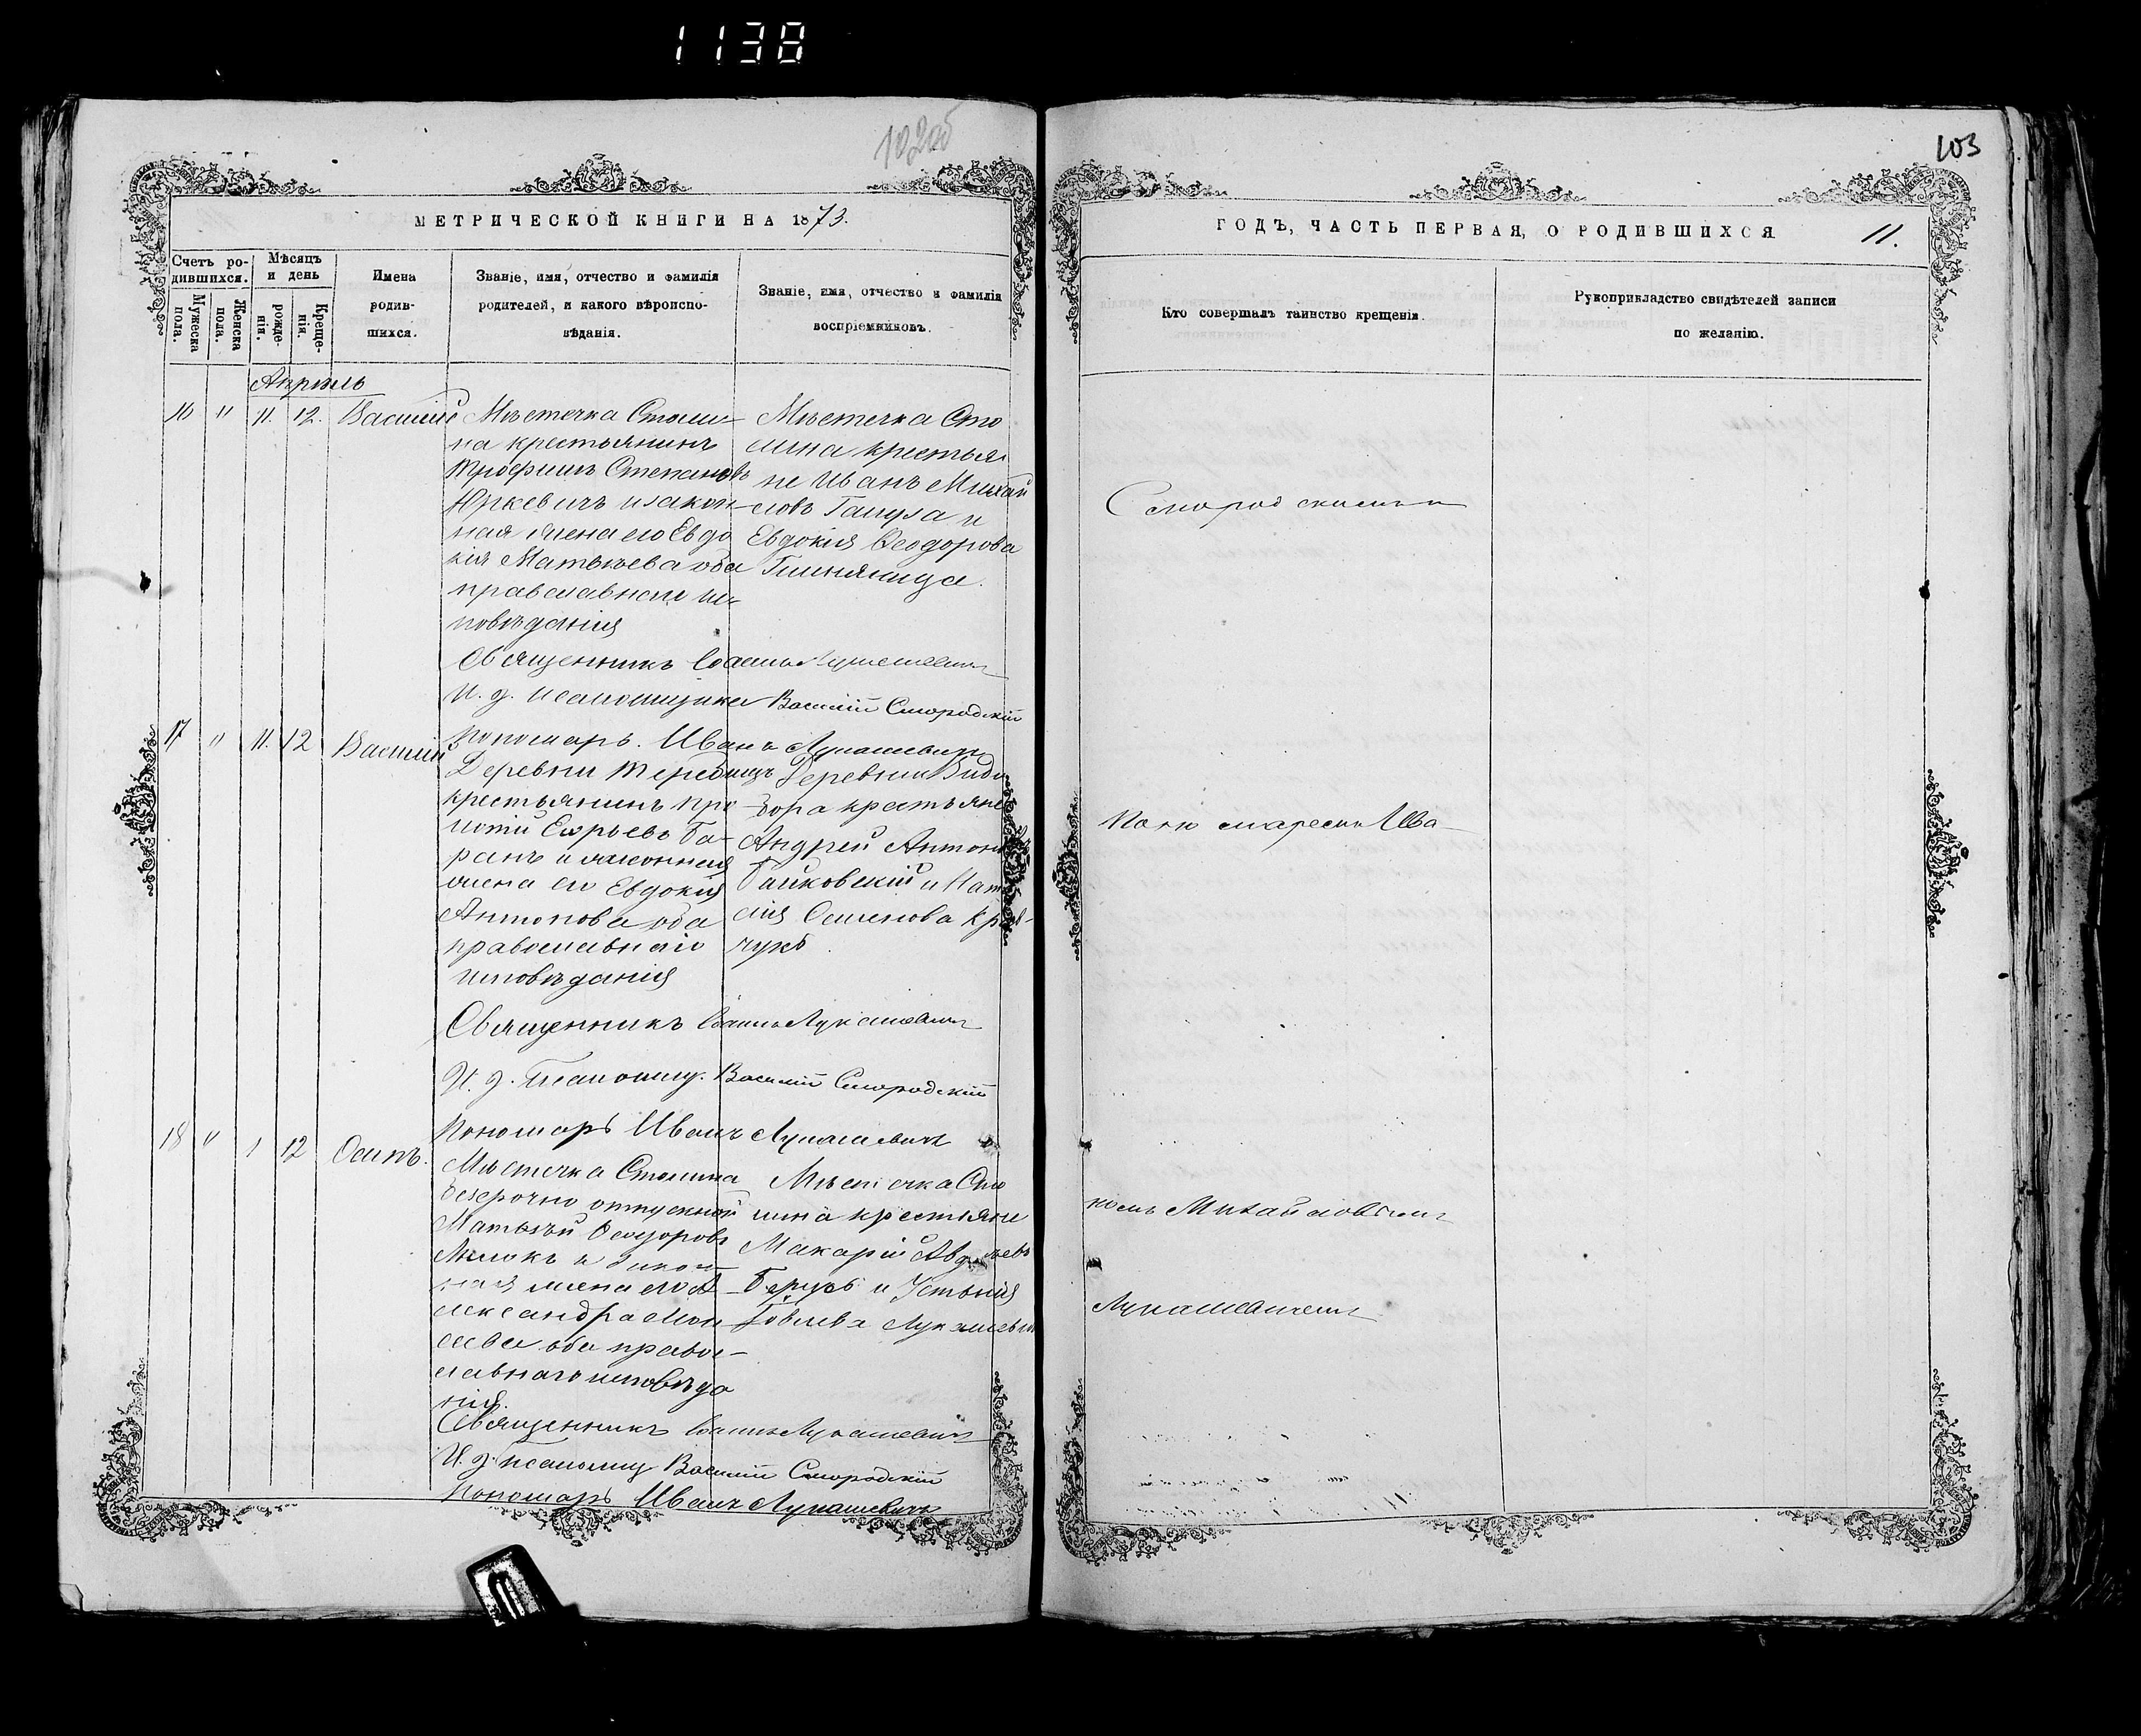 1138
102об
103
МЕТРИЧЕСКОЙ КНИГИ НА 1873.
Счетъ ро-
дившихся.
Мужеска
пола.
Женска
пола.
Мѣсяцъ
и день
рожде-
нія.
Креще-
нія.
Имена
родив-
шихся.
Званіе, имя, отчество и фамилія
родителей, и какого вѣроиспо-
вѣданія.
Званіе, имя, отчество и фамилія
воспріемниковъ.
Апрѣль
16 " 11. 12. Василій
Мѣстечка Столи-
на крестьянинъ
Трофимъ Степановъ
Юркевичъ и закон-
ная жена его Евдо
кія Матвѣева оба
православнаго ис
повѣданія
Мѣстечка Сто
лина крестья
не Иванъ Михай
ловъ и
Евдокія Ѳеодорова
Священникъ Іоаннъ Лукашевичъ
И. д. псаломщика Василій Смородскій
Пономарь Иванъ Лукашевичъ
17 " 11. 12 Василій
Деревни Теребличъ
крестьянинъ Про
Баранъ и законная
жена его Евдокія
Антонова оба
православнаго
исповѣданія
Деревни Види
бора крестьяне
Андрей Антоновъ
и Ната
лія Семенова Крав-
чукъ.
Священникъ Іоаннъ Лукашевичъ
И. д. Псаломщ. Василій Смородскій
Пономарь Иванъ Лукашевичъ
18 " 1 12 Осипъ.
Мѣстечка Столина
безсрочно отпускной
Матвѣй Ѳеодоровъ
и закон
ная жена его А
лександра
оба право-
славнаго исповѣда
нія.
Мѣстечка Сто
лина крестьяне
Макарій
и Устинія
Лукашевичъ
Священникъ Іоаннъ Лукашевичъ
И. д. псаломщ Василій Смородскій
Пономарь Иванъ Лукашевичъ
ГОДЪ, ЧАСТЬ ПЕРВАЯ, О РОДИВШИХСЯ 11.
Кто совершалъ таинство крещенія.
Рукоприкладство свидѣтелей записи
по желанію.
Смородскимъ и
Пономаремъ Ива-
номъ Михайловымъ
Лукашевичемъ